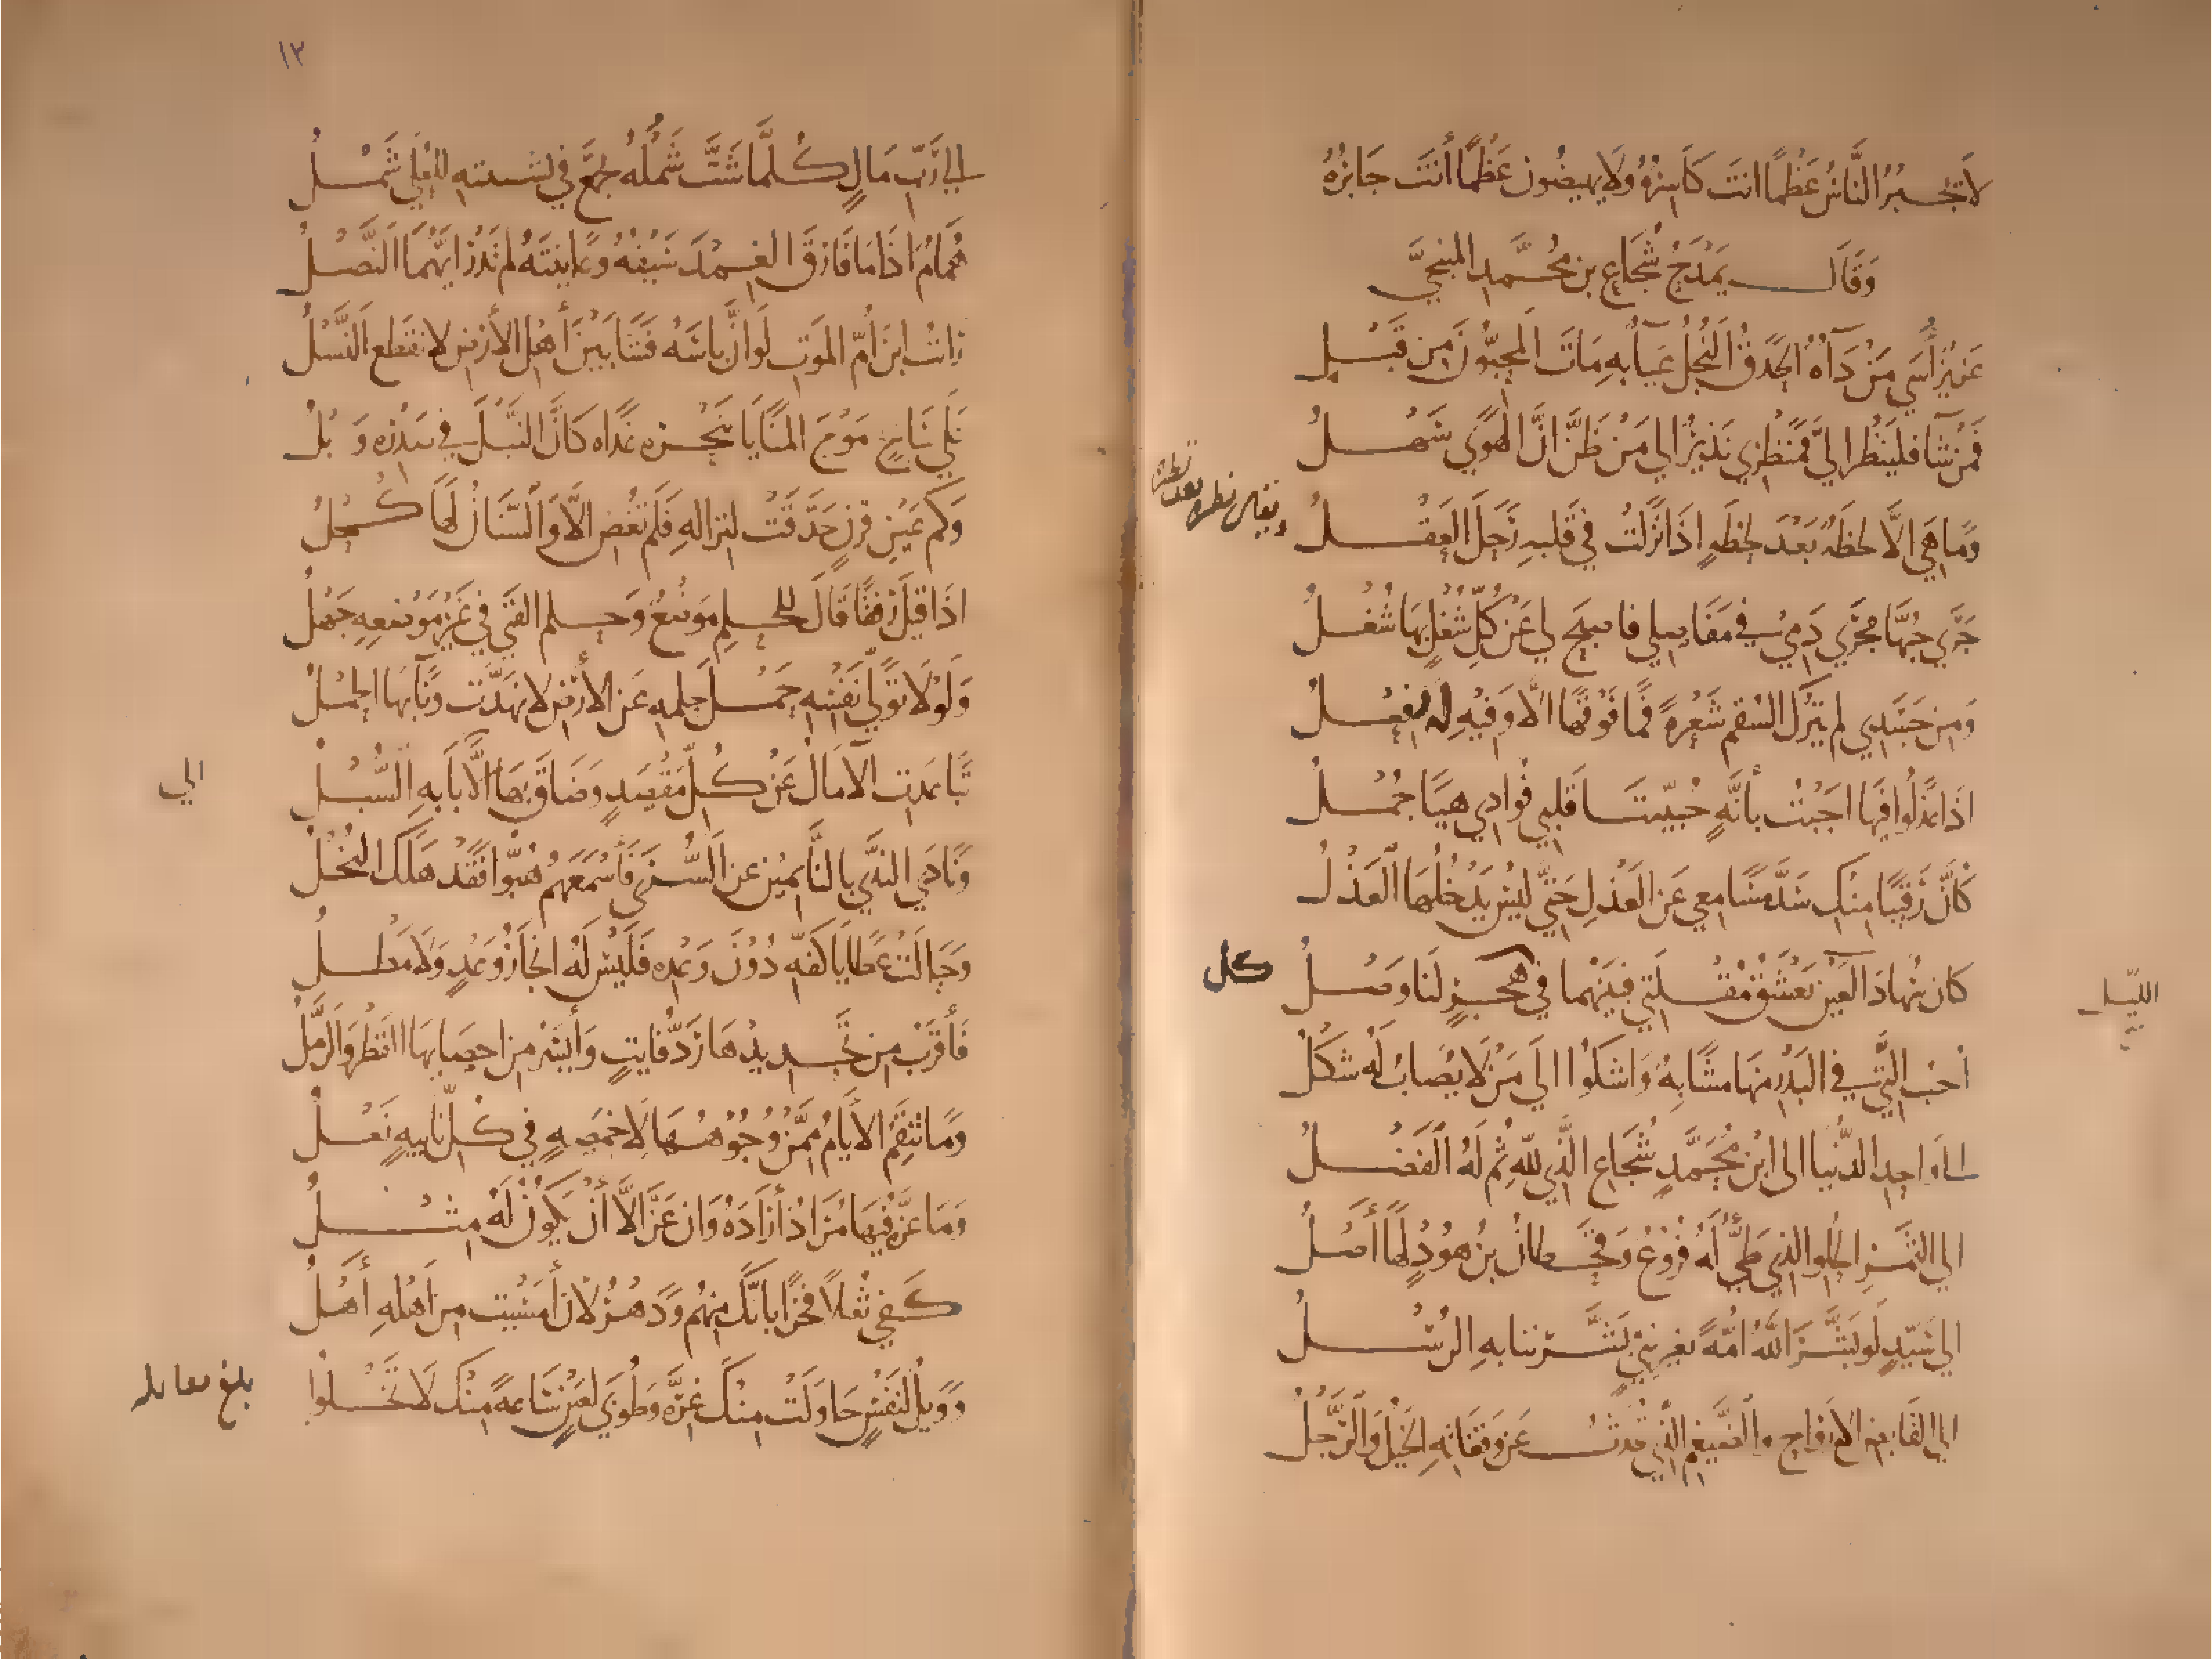 لا يجبر الناس عظما انت كاسره ولا يهيضون عظما أنت جابره
وقال يمدح شجاع بن محمد المنبجي
عزيز أسي من داؤه الحدق النجل عيآء به مات المحبون من قبل
فمن شآ فلينظر الي فمنظري نذير الي من ظن ان الهوي سهل
وما هي الا لحظة بعد لحظه اذا نزلت في قلبه رحل العقل
جري حبها مجري دمي في مفاصلي فاصبح لي عن كل شغل بها شغل
ومن جسدي لم يترك السقم شعرة فما فوقها الا وفيه له فعل
اذا عذلوا فيها اجبت بأنة حبيبتا قلبي فوادي هيا جمل
كأن رقيبا منك سد مسامعي عن العذل حتي ليس يدخلها العذل
كان سهاد العين يعشق مقلتي فبينهما في كل هجر لنا وصل
الليل
أحب التي في البدر منها مشابه واشكوا الي من لا يصاب له شكل
الي واحد الدنيا الى ابن محمد شجاع الذي لله ثم له الفضل
الي الثمر الحلو الذي طيء له فروع وقحطان بن هود لها أصل
الي سيد لو بشر الله امة بغير نبي بشرتنا به الرسل
الي القابض الارواح والضيغم الذي تحدث عن وقفاته الخيل والرجل
١٣
الي رب مال كلما شت شمله تجمع في تشتيته للعلي شمل
همام اذا ما فارق الغمد سيفه وعاينته لم تدر ايهما النصل
رايت ابن ام الموت لو ان باسه فشا بين أهل الأرض لانقطع النسل
علي سابح موج المنايا بنحره غداه كان النبل في صدره وبل
وكم عين قرن حدقت لنزاله فلم تغض الا والسنان لها كحل
اذا قيل رفقا قال للحلم موضع وحلم الفتي في غير موضعه جهل
ولولا تولي نفسه حمل حلمه عن الأرض لانهدت ونابها الحمل
تباعدت الآمال عن كل مقصد وضاق بها الا الي بابه السبل
ونادي الندي بالنايمين عن السري فأسمعهم هبوا فقد هلك البخل
وحالت عطايا كفه دون وعده فليس له انجاز وعد ولا مطل
فأقرب من تحديدها رد فايت وأيسر من احصايها القطر والرمل
وما تنقم الايام ممن وجوهها لاخمصه في كل نايبه نعل
وما عزه فيها مراد أراده وان عز الا أن يكون له مثل
كفي ثعلا فخرا بانك منهم ودهر لان أمسيت من أهله أهل
وويل لنفس حاولت منك غرة وطوبي لعين ساعة منك لا تخلوا
بلغ مقابله